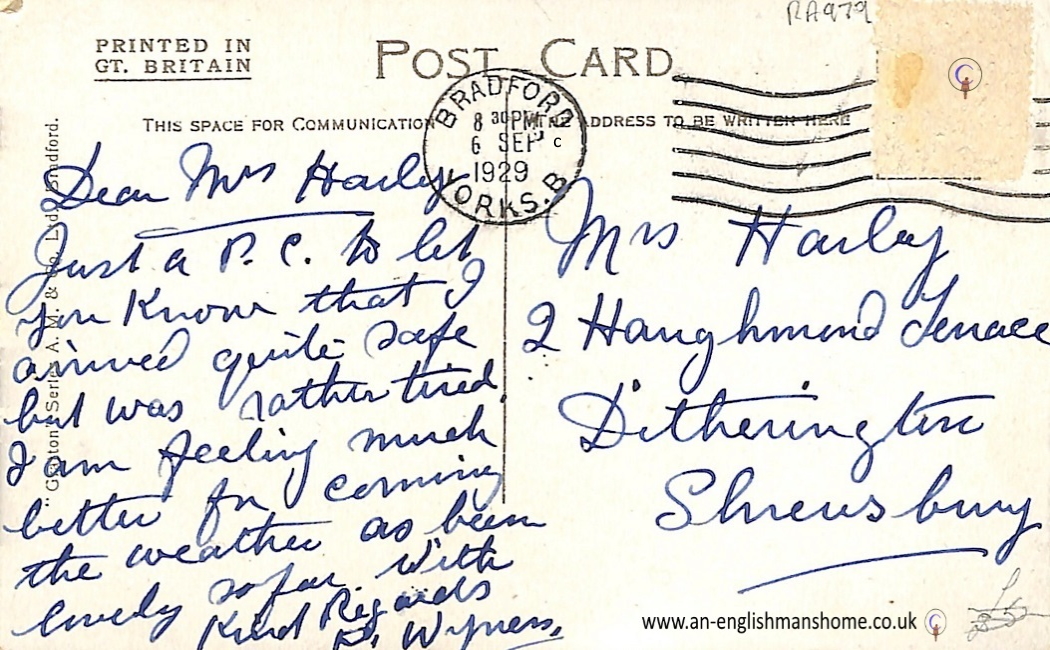 RA979
PRINTED IN
GT. BRITAIN
POST CARD
THIS SPACE FOR COMMUNICATION
THE ADDRESS TO BE WRITTEN HERE
BRADFORD
8 30 PM
6 SEP
1929
YORKS. B
C
Dear Mrs Harley
Just a P.C. to let
you Know that I
arrived quite safe
but was rather tired.
I am feeling much
better for coming
the weather as been
lovely so far. With
Kind Regards
Wyness.
Mrs Harley
2 Haughmond Terrace
Ditherington
Shrewsbury
Series A.M. & Co. Ltd. Bradford.
www.an-englishmanshome.co.uk